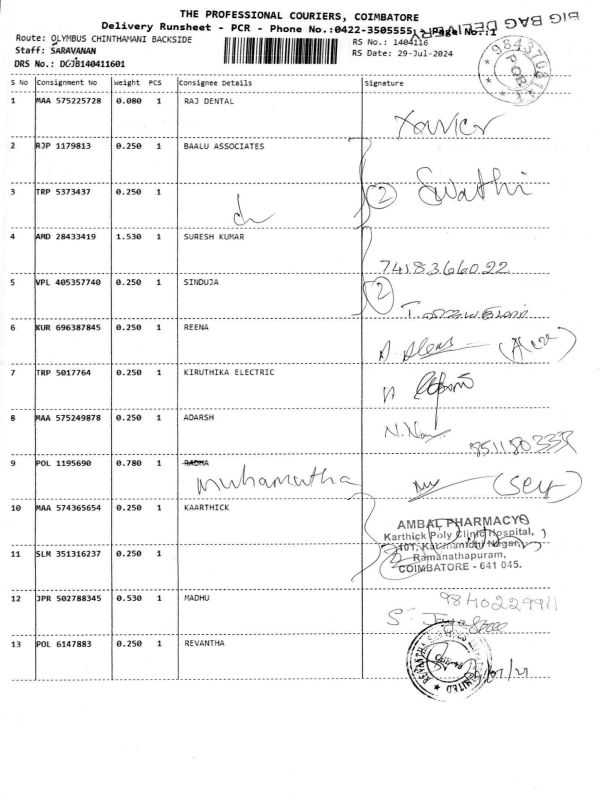 THE PROFESSIONAL COURIERS, COIMBATORE
BIG BAG DELIVERY
Delivery Runsheet - PCR - Phone No.:0422-3505555, Page No.:1
Route: OLYMBUS CHINTHAMANI BACKSIDE
RS No.: 1404116
Staff: SARAVANAN
RS Date: 29-Jul-2024
DRS No.: DGJB140411601
PCR
S No Consignment No Weight PCS Consignee Details Signature
1 MAA 575225728 0.080 1 RAJ DENTAL
Xavier
2 RJP 1179813 0.250 1 BAALU ASSOCIATES
3 TRP 5373437 0.250 1
2 Swathi
4 AMD 28433419 1.530 1 SURESH KUMAR
7418366022
5 VPL 405357740 0.250 1 SINDUJA
2
6 KUR 696387845 0.250 1 REENA
7 TRP 5017764 0.250 1 KIRUTHIKA ELECTRIC
8 MAA 575249878 0.250 1 ADARSH
9 POL 1195690 0.780 1 RADHA
10 MAA 574365654 0.250 1 KAARTHICK
AMBAL PHARMACY
Karthick Poly Clinic Hospital,
Ramanathapuram,
COIMBATORE - 641 045.
11 SLM 351316237 0.250 1
12 JPR 502788345 0.530 1 MADHU
13 POL 6147883 0.250 1 REVANTHA